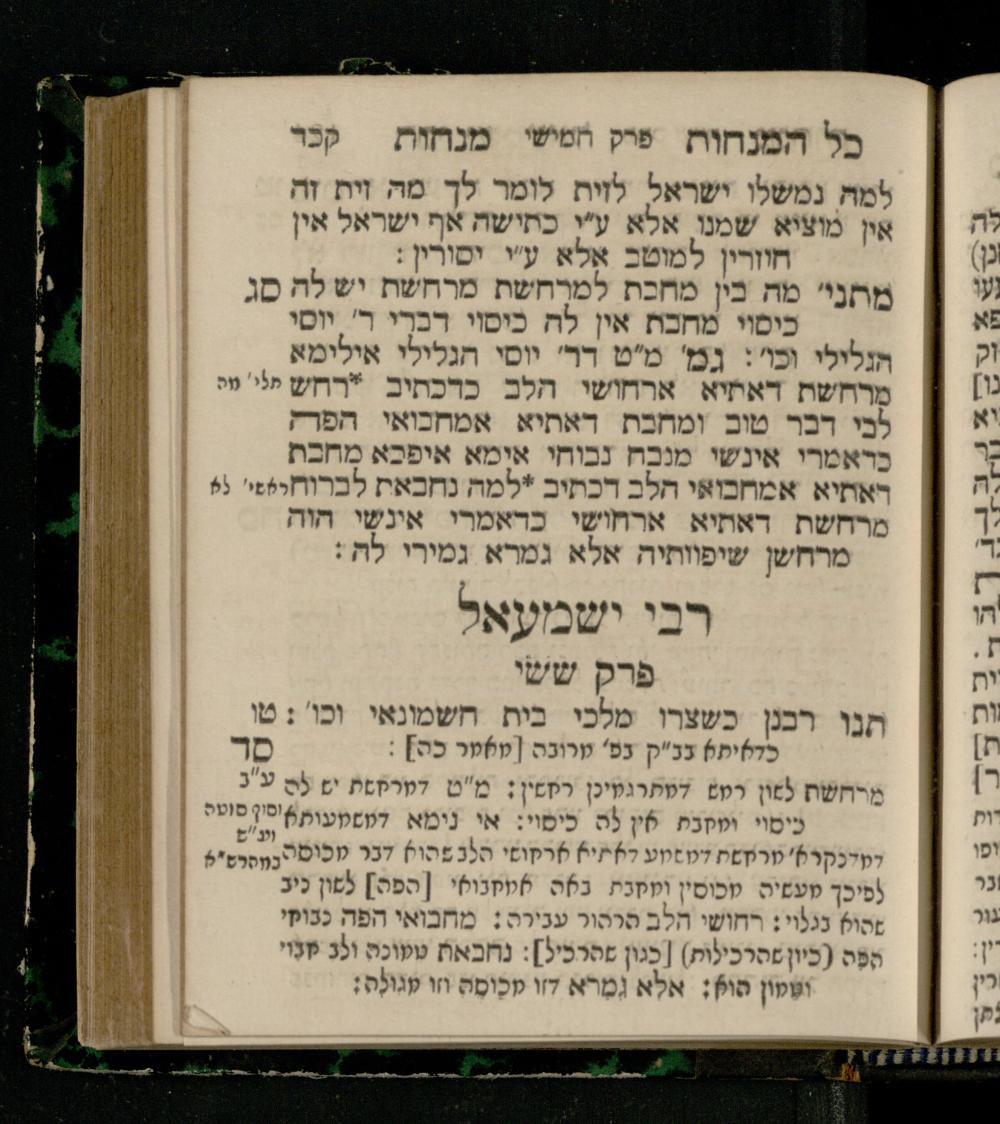 כל המנחות פרק חמישי מנחות קכד
למה נמשלו ישראל לזית לומר לך מה זית זה
אין מוציא שמנו אלא ע״י כתישה אף ישראל אין
חוזרין למוטב אלא ע״י יסורין :
מתני׳ מה בין מחבת למרחשת מרחשת יש לה סג
כיסוי מחבת אין לה כיסוי דברי ר׳ יוסי
הגלילי וכו׳ : גמ׳ מ״ט דר׳ יוסי הגלילי אילימא
מרחשת דאתיא ארחושי הלב כדכתיב *רחש תלי׳ מה
לבי דבר טוב ומחבת דאתיא אמחבואי הפה
כדאמרי אינשי מנבח נבוחי אימא איפכא מחבת
דאתיא אמחבואי הלב דכתיב *למה נחבאת לברוח ראשי׳ לא
מרחשת דאתיא ארחושי כדאמרי אינשי הוה
מרחשן שיפוותיה אלא גמרא גמירי לה :
רבי ישמעאל
פרק ששי
תנו רבנן כשצרו מלכי בית חשמונאי וכו׳ : טו
כדאיתא בב״ק בפ׳ מרובה [מאמר כה] : סד
מרחשת לשון רמש דמתרגמינן רחשין : מ״ט דמרחשת יש לה ע״ב
כיסוי ומחבת אין לה כיסוי : אי נימא דמשמעותא וסוף סוטה
ועי״ש
דמדבקרא׳ מרחשת דמשמע דאתיא ארחושי הלב שהוא דבר מכוסה במהרש״א
לפיכך מעשיה מכוסין ומחבת באה אמחבואי [הפה] לשון ניב
שהוא בגלוי : רחושי הלב הרהור עבירה : מחבואי הפה נבוחי
הפה (כיון שהרכילות) [כגון שהרכיל] : נחבאת טמונה ולב חבוי
וטמון הוא : אלא גמרא דזו מכוסה וזו מגולה :